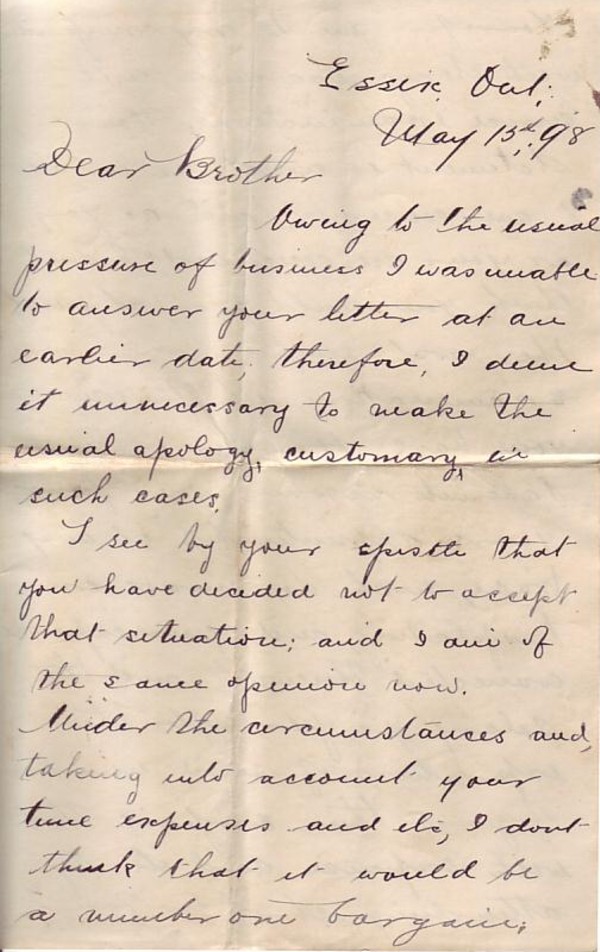 Essex, Ont;
May 15th, 98
Dear Brother
Owing to the usual
pressure of business I was unable
to answer your letter at an
earlier date; therefore, I deem
it unnecessary to make the
usual apology, customary, in
such cases.
I see by your epistle that
you have decided not to accept
that situation; and I am of
the same opinion now.
Under the circumstances and,
taking into account your
time expenses and etc, I dont
think that it would be
a number one bargain;